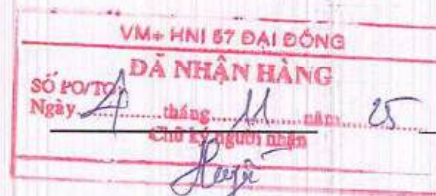 VM+ HNI 67 ĐẠI ĐỒNG
ĐÃ NHẬN HÀNG
SỐ PO/TO:
Ngày 4 tháng 11 năm 25
Chữ ký người nhận